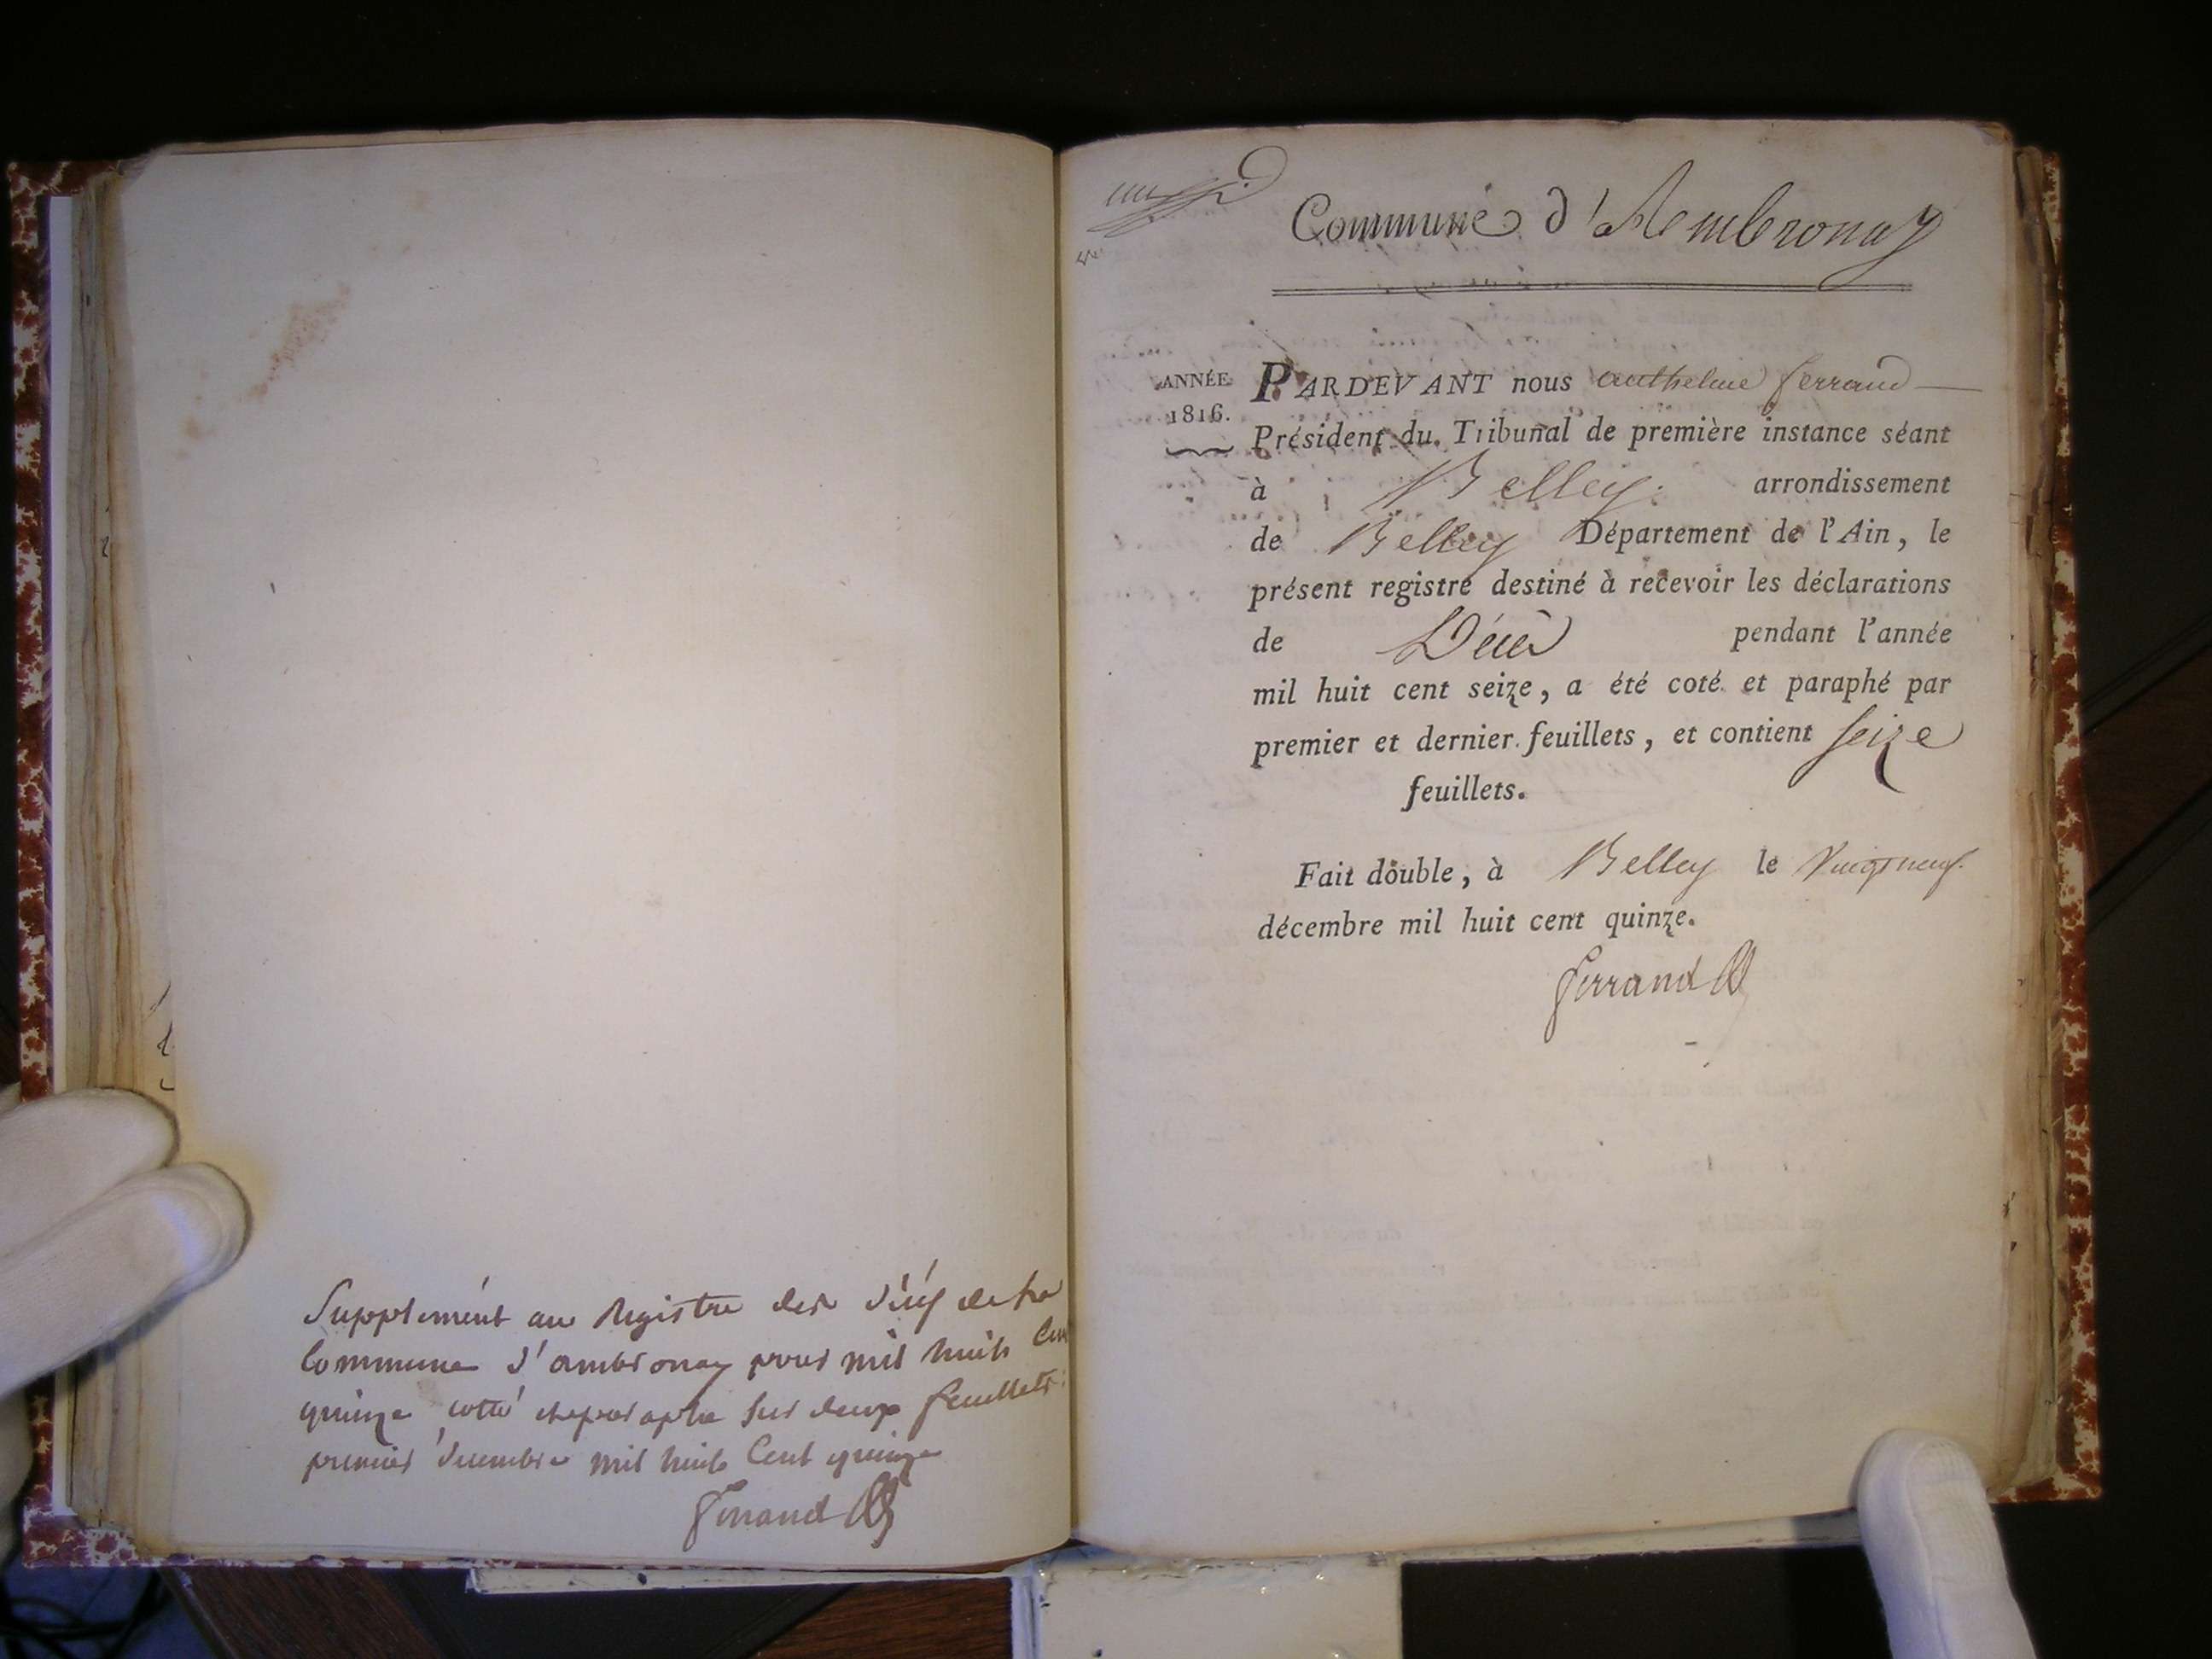 Supplement au Registre des décés de la
Commune d'ambronay pour mil huit Cent
quinze cotté et paraphé sur deux feuillets
premier decembre mil huit Cent quinze
Ferrand
Commune d'Ambronay
ANNÉE
1816.
PARDEVANT nous anthelme ferrand
Président du Tribunal de première instance séant
à Belley arrondissement
de Belley Département de l'Ain, le
présent registre destiné à recevoir les déclarations
de Décès pendant l'année
mil huit cent seize, a été coté et paraphé par
premier et dernier feuillets, et contient seize
feuillets.
Fait double, à Belley le Vingt neuf
décembre mil huit cent quinze.
Ferrand